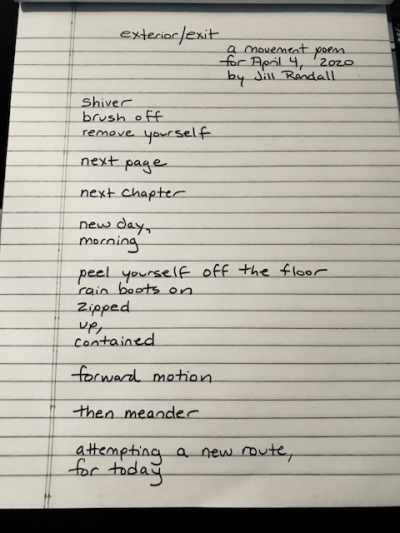 exterior/exit
a movement poem
for April 4, 2020
by Jill Randall
shiver
brush off
remove yourself
next page
next chapter
new day,
morning
peel yourself off the floor
rain boots on
zipped
up,
contained
forward motion
then meander
attempting a new route,
for today